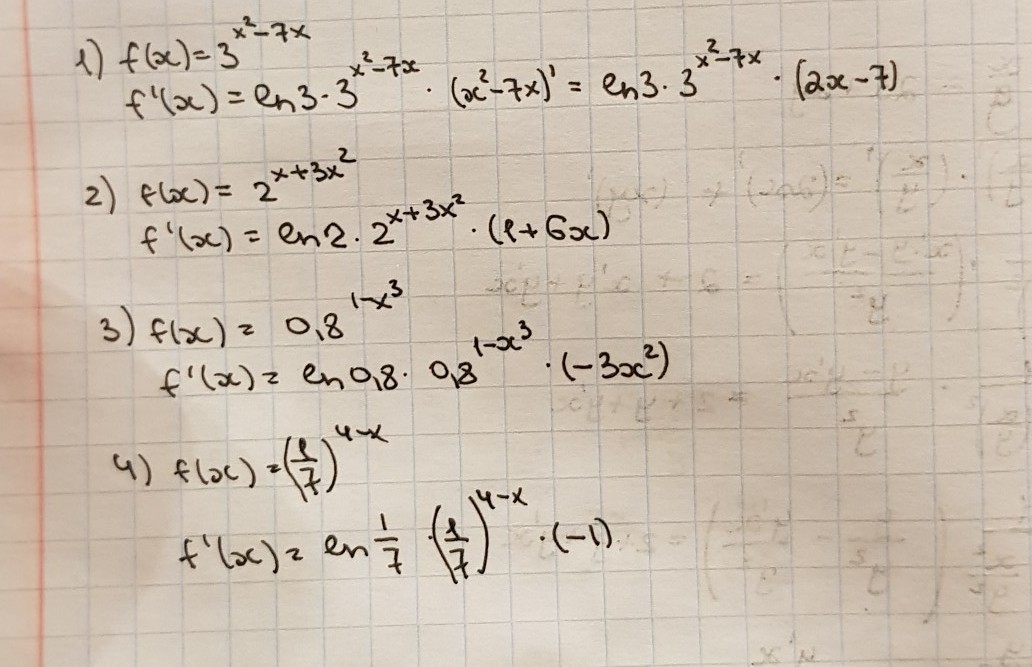 1) f(x) = 3^{x^2-7x}
f'(x) = ln3 · 3^{x^2-7x} · (x^2-7x)' = ln3 · 3^{x^2-7x} · (2x-7)
2) f(x) = 2^{x+3x^2}
f'(x) = ln2 · 2^{x+3x^2} · (1+6x)
3) f(x) = 0,8^{1-x^3}
f'(x) = ln0,8 · 0,8^{1-x^3} · (-3x^2)
4) f(x) = (1/7)^{4-x}
f'(x) = ln 1/7 · (1/7)^{4-x} · (-1)